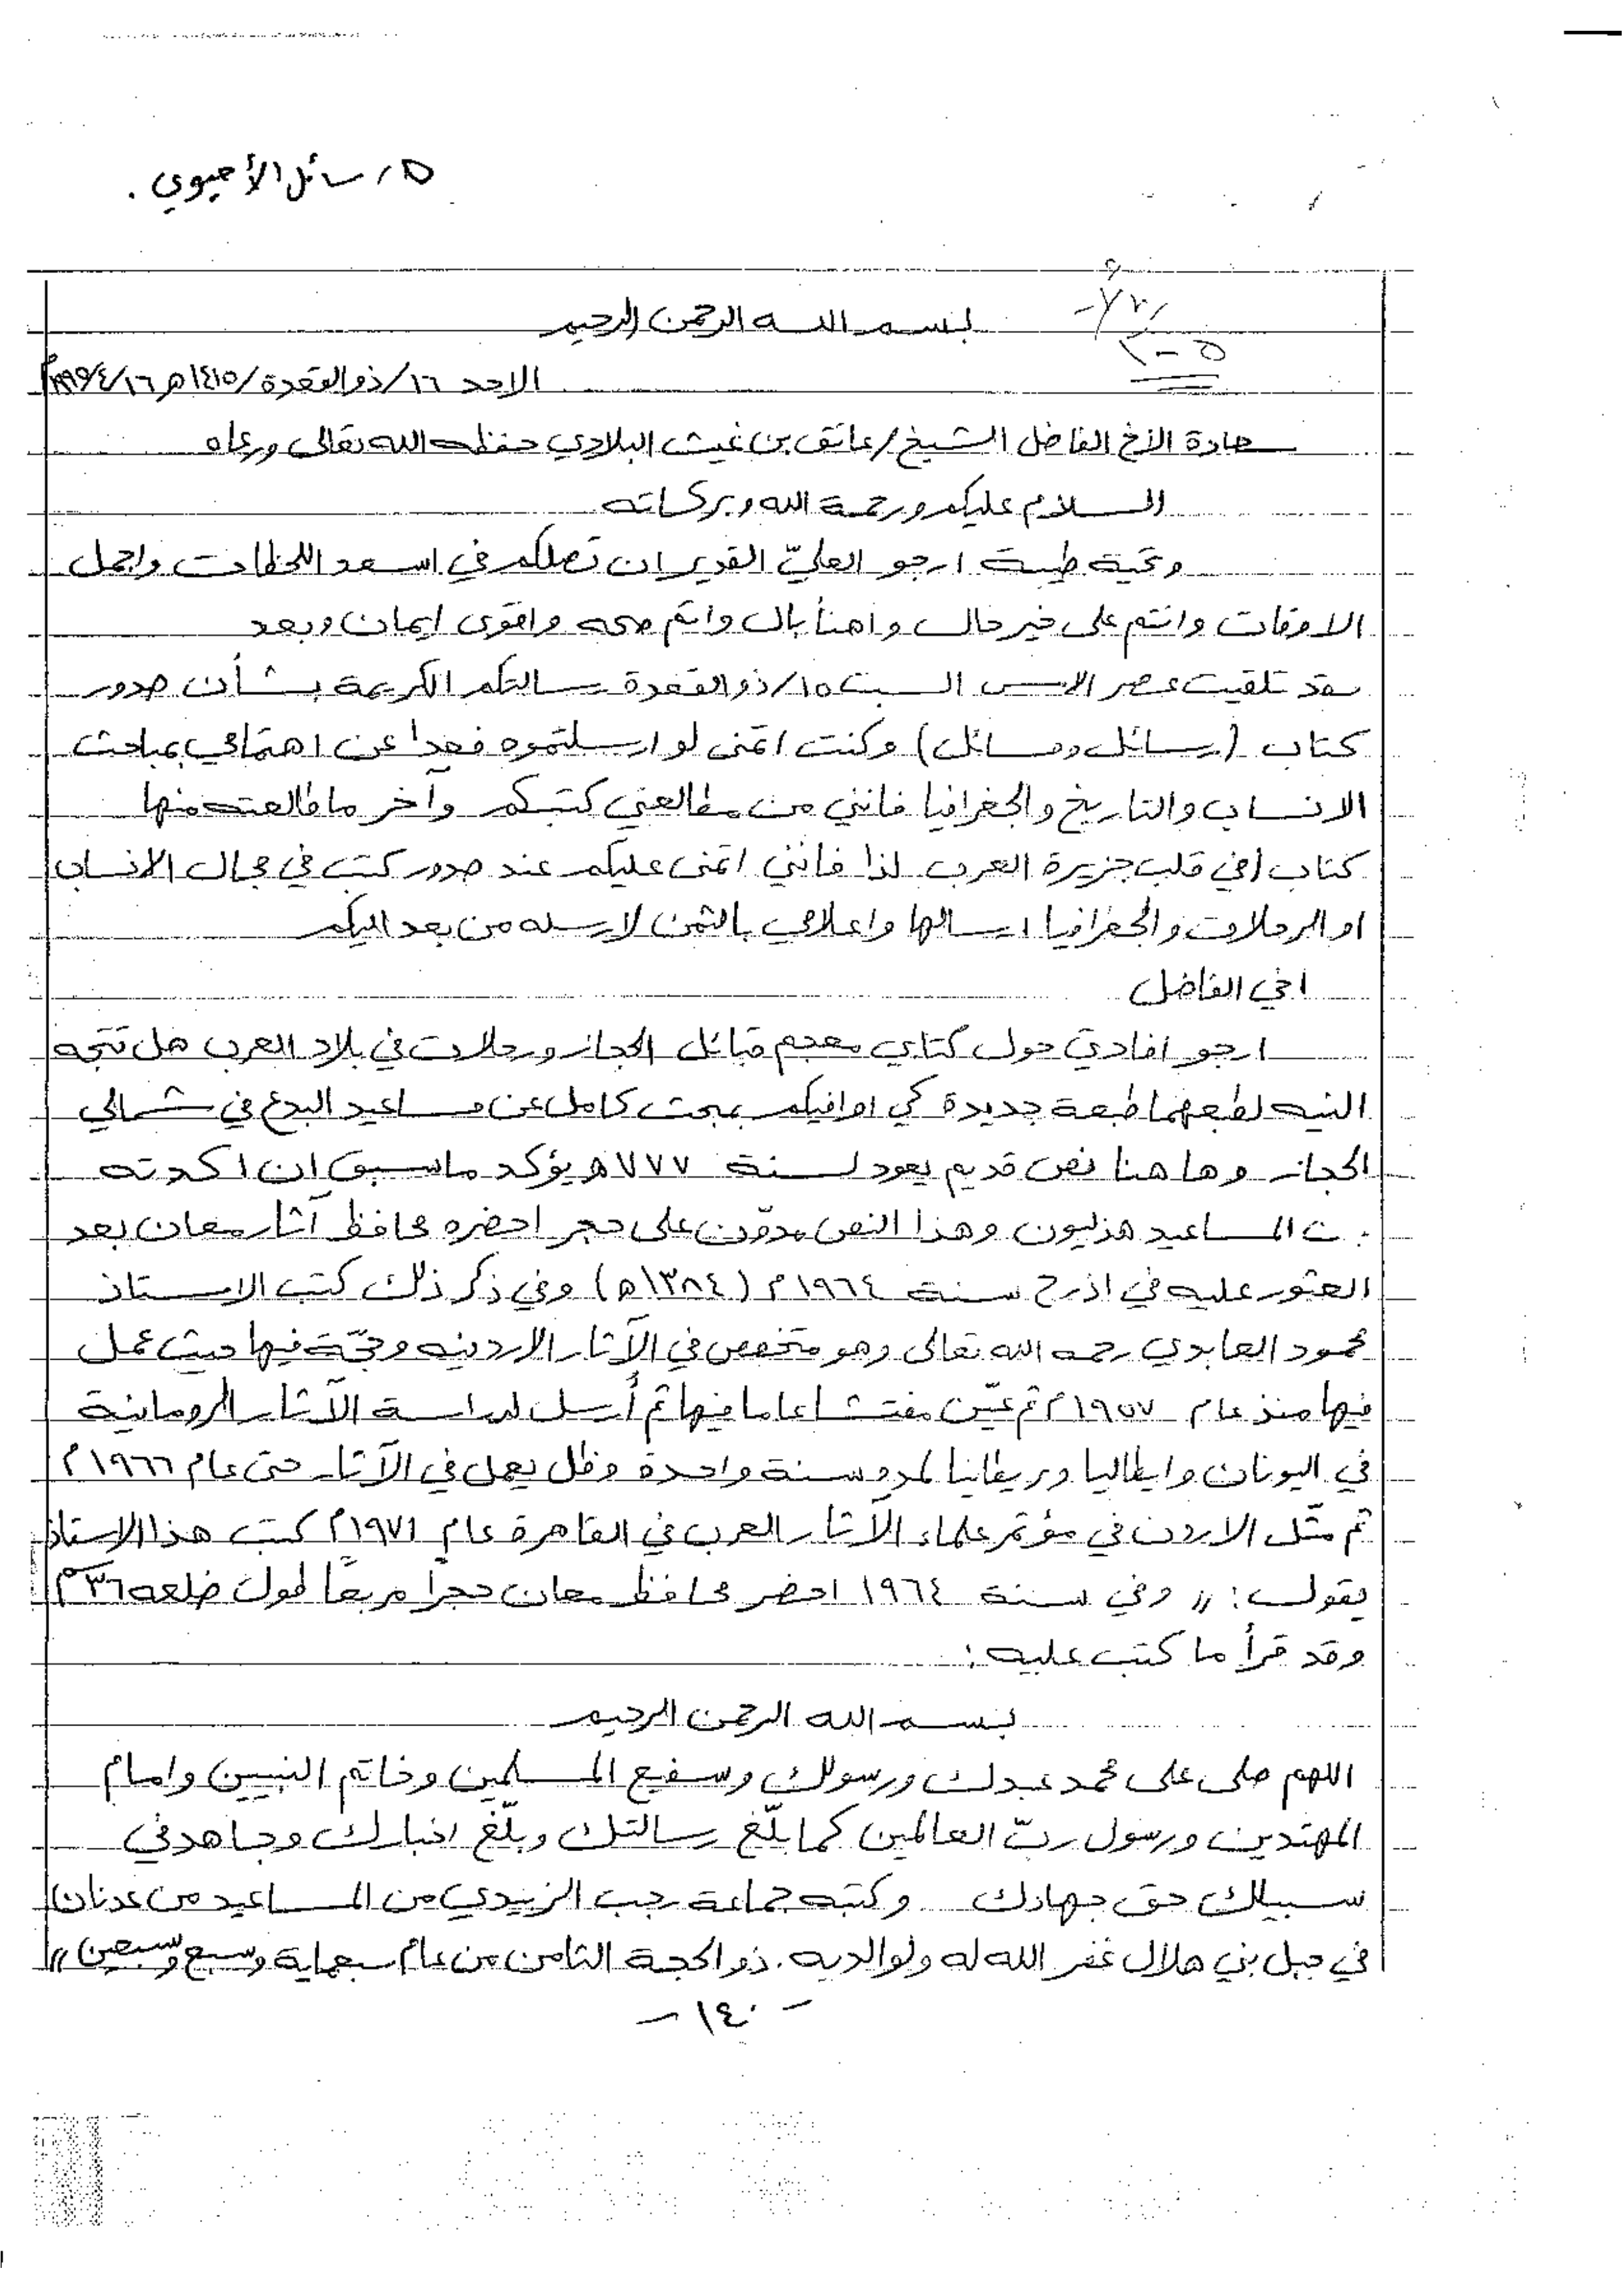 ٥ رسائل الأحيوي.
بسم الله الرحمن الرحيم
الاحد ١٦/ذو القعدة/١٤١٥هـ ١٦/٤/١٩٩٥م
سعادة الأخ الفاضل الشيخ/عاتق بن غيث البلادي حفظه الله تعالى ورعاه
السلام عليكم ورحمة الله وبركاته
وتحية طيبة ارجو العليّ القدير ان تصلكم في اسعد اللحظات واجمل
الاوقات وانتم على خير حال واهنأ بال واتم صحه واقوى ايمان وبعد
فقد تلقيت عصر الامس السبت ١٥/ذو القعدة رسالتكم الكريمة بشأن صدور
كتاب (رسائل ومسائل) وكنت اتمنى لو ارسلتموه فعدا عن اهتمامي بمباحث
الانساب والتاريخ والجغرافيا فانني من مطالعي كتبكم وآخر ما طالعته منها
كتاب (في قلب جزيرة العرب لذا فانني اتمنى عليكم عند صدور كتب في مجال الانساب
او الرحلات والجغرافيا ارسالها واعلامي بالثمن لارسله من بعد اليكم
اخي الفاضل
ارجو افادتي حول كتابي معجم قبائل الحجاز ورحلات في بلاد العرب هل تتجه
النيه لطبعهما طبعة جديدة كي اوافيكم ببحث كامل عن مساعيد البدع في شمالي
الحجاز وها هنا نص قديم يعود لسنة ٧٧٧هـ يؤكد ما سبق ان اكدته
ن المساعيد هذليون وهذا النص مدوّن على حجر احضره محافظ آثار معان بعد
العثور عليه في اذرح سنة ١٩٦٤م (١٣٨٤هـ) وفي ذكر ذلك كتب الاستاذ
محمود العابدي رحمه الله تعالى وهو متخصص في الآثار الاردنيه وحجّة فيها حيث عمل
فيها منذ عام ١٩٥٧م ثم عيّن مفتشا عاما فيها ثم أرسل لدراسة الآثار الرومانية
في اليونان وايطاليا وبريطانيا لمدة سنة واحدة وظل يعمل في الآثار حتى عام ١٩٦٦م
ثم مثّل الاردن في مؤتمر علماء الآثار العرب في القاهرة عام ١٩٧١م كتب هذا الاستاذ
يقول: "وفي سنة ١٩٦٤ احضر محافظ معان حجراً مربعاً طول ضلعه ٣٦سم
وقد قرأ ما كتب عليه:
بسم الله الرحمن الرحيم
اللهم صلى على محمد عبدك ورسولك وسفيع المسلمين وخاتم النبيين وامام
المهتدين ورسول ربّ العالمين كما بلّغ رسالتك وبلّغ اخبارك وجاهد في
سبيلك حق جهادك وكتبه جماعة رجب الزبيدي من المساعيد من عدنان
في جبل بني هلال غفر الله له ولوالديه. ذو الحجة الثامن من عام سبعماية وسبع وسبعين"
- ١٤٠ -